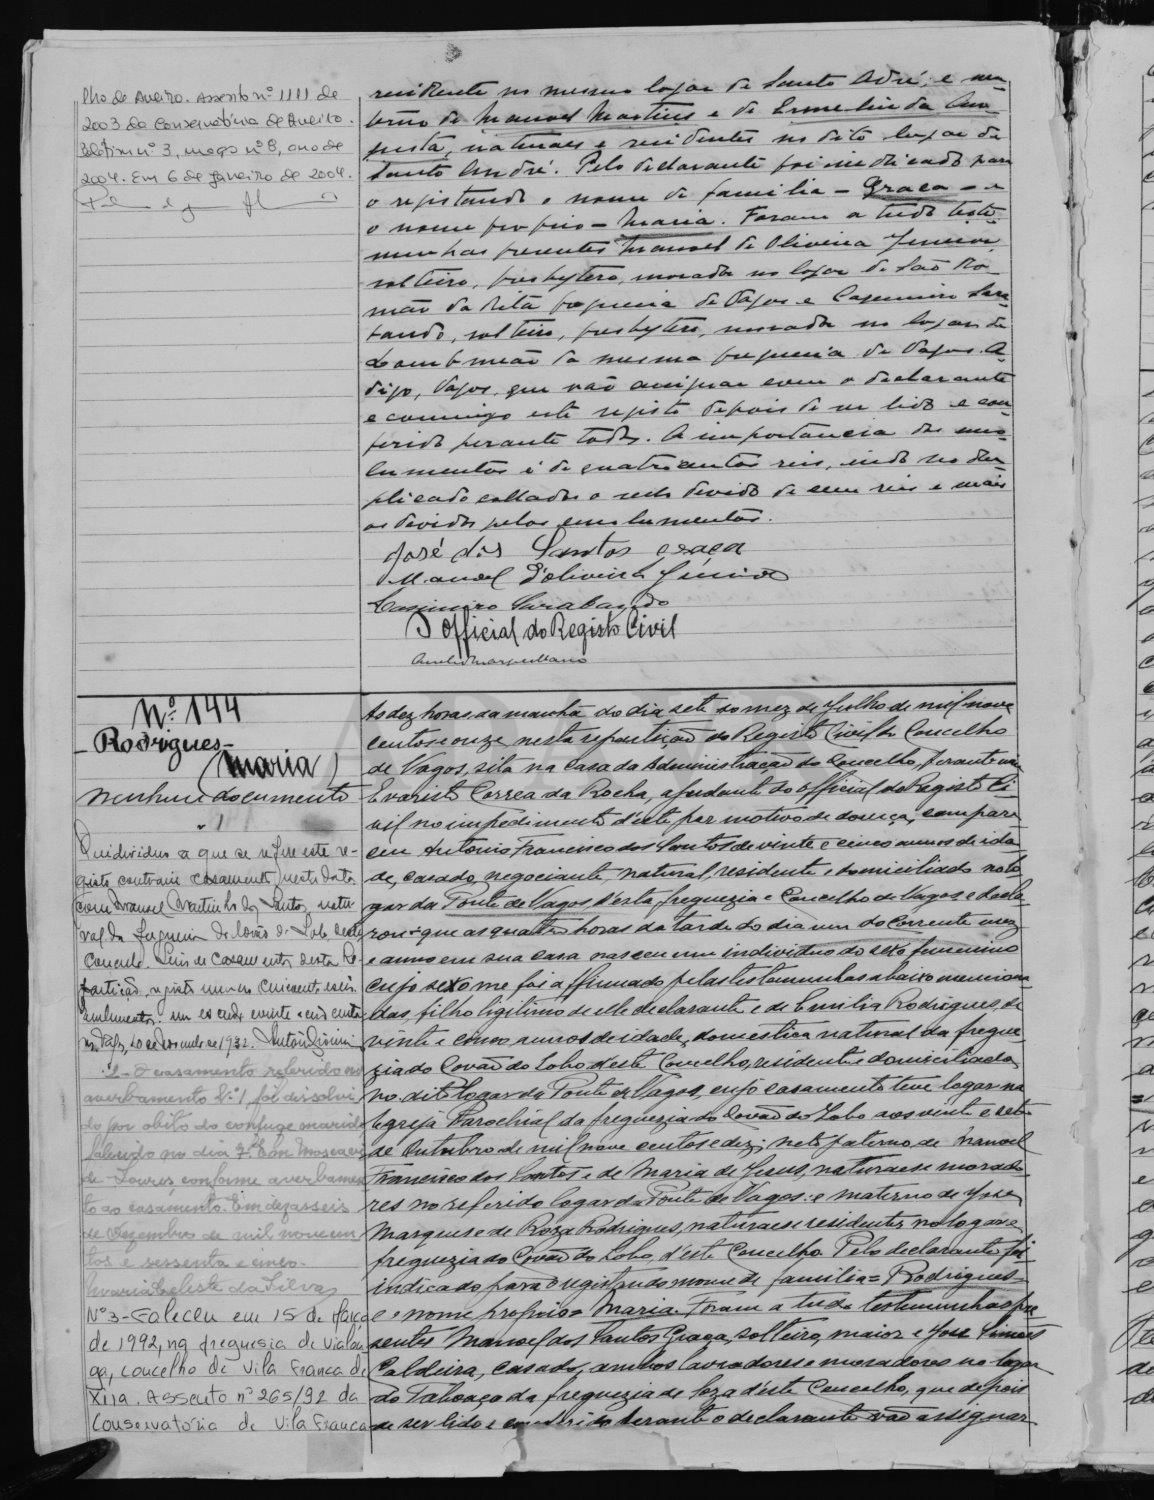 lho de Aveiro. Assento nº 1111 de
2003 da Conservatória de Aveiro.
Boletim nº 3, maço nº 8, ano de
2004. Em 6 de Janeiro de 2004.
residente no mesmo logar de Santo André; e ma-
terno de Manoel Martins e de Ermelinda Au-
gusta, naturaes e residentes no dito logar de
Santo André. Pelo declarante foi indicado para
o registando o nome de familia = Graça = e
o nome proprio = Maria. Foram a tudo teste-
munhas presentes Manoel de Oliveira Junior,
solteiro, presbytero, morador no logar de São Ro-
mão da dita freguezia de Vagos e Casimiro Sara-
bando, solteiro, presbytero, morador no logar de
Lombomeão da mesma freguezia de Vagos. A
digo, Vagos, que vão assignar com o declarante
e commigo este registo depois de ser lido e con-
ferido perante todos. A importancia dos emo-
lumentos é de quatrocentos reis, indo no du-
plicado collados o sello devido de cem reis e mais
os devidos pelos emolumentos.
José dos Santos Graça
Manoel d'Oliveira Júnior
Casimiro Sarabando
O Official do Registo Civil
Nº 144
Rodrigues
(Maria)
Nenhum documento
1
O individuo a que se refere este re-
gisto contraiu casamento nesta data
com Manuel Martinho dos Santos, natu-
ral da freguesia de Covão do Lobo, deste
Concelho. Livro de casamentos desta Re-
partição, registo numero cincoenta e seis.
2 - O casamento referido no
averbamento Nº 1, foi dissolvi-
do por obito do conjuge marido
falecido no dia 7 em Moscavide
de Loures, conforme averbamen-
to ao casamento. Em dezasseis
de Dezembro de mil novecen-
tos e sessenta e cinco.
Maria Celeste da Silva
Nº 3 - Faleceu em 15 de Março
de 1992, na freguesia de Vialon-
ga, concelho de Vila Franca de
Xira. Assento nº 265/92 da
Conservatória de Vila Franca
Ás dez horas da manhã do dia sete do mez de Julho de mil nove
centos e onze, nesta repartição do Registo Civil do Concelho
de Vagos, sita na Casa da Administração do Concelho, perante mim
Evaristo Correa da Rocha, ajudante do official do Registo Ci-
vil no impedimento d'este por motivo de doença, compare-
ceu Antonio Francisco dos Santos de vinte e cinco annos de ida-
de, casado, negociante, natural, residente e domiciliado no lo-
gar da Ponte de Vagos, d'esta freguezia e Concelho de Vagos e decla-
rou que as quatro horas da tarde do dia um do corrente mez
e anno em sua casa nasceu um individuo do sexo feminino
cujo sexo me foi affirmado pelas testemunhas abaixo menciona-
das, filho ligitimo de elle declarante e de Emilia Rodrigues, de
vinte e cinco annos de idade, domestica, natural da fregue-
zia do Covão do Lobo, d'este Concelho, residente e domiciliada
no dito logar da Ponte de Vagos, cujo casamento teve logar na
Egreja Parochial da freguezia do Covão do Lobo aos vinte e sete
de Outubro de mil nove centos e dez; neto paterno de Manoel
Francisco dos Santos e de Maria de Jesus, naturaes e morado-
res no referido logar da Ponte de Vagos: e materno de José
Marques e de Roza Rodrigues, naturaes e residentes no logar e
freguezia do Covão do Lobo, d'este Concelho. Pelo declarante foi
indicado para o registando o nome de familia = Rodrigues =
e o nome proprio = Maria. Foram a tudo testemunhas pre-
sentes Manoel dos Santos Graça, solteiro, maior e José Simões
Caldeira, casado, ambos lavradores e moradores no logar
do Taboaço da freguezia de Soza d'este Concelho, que depois
de ser lido e conferido perante o declarante vão assignar